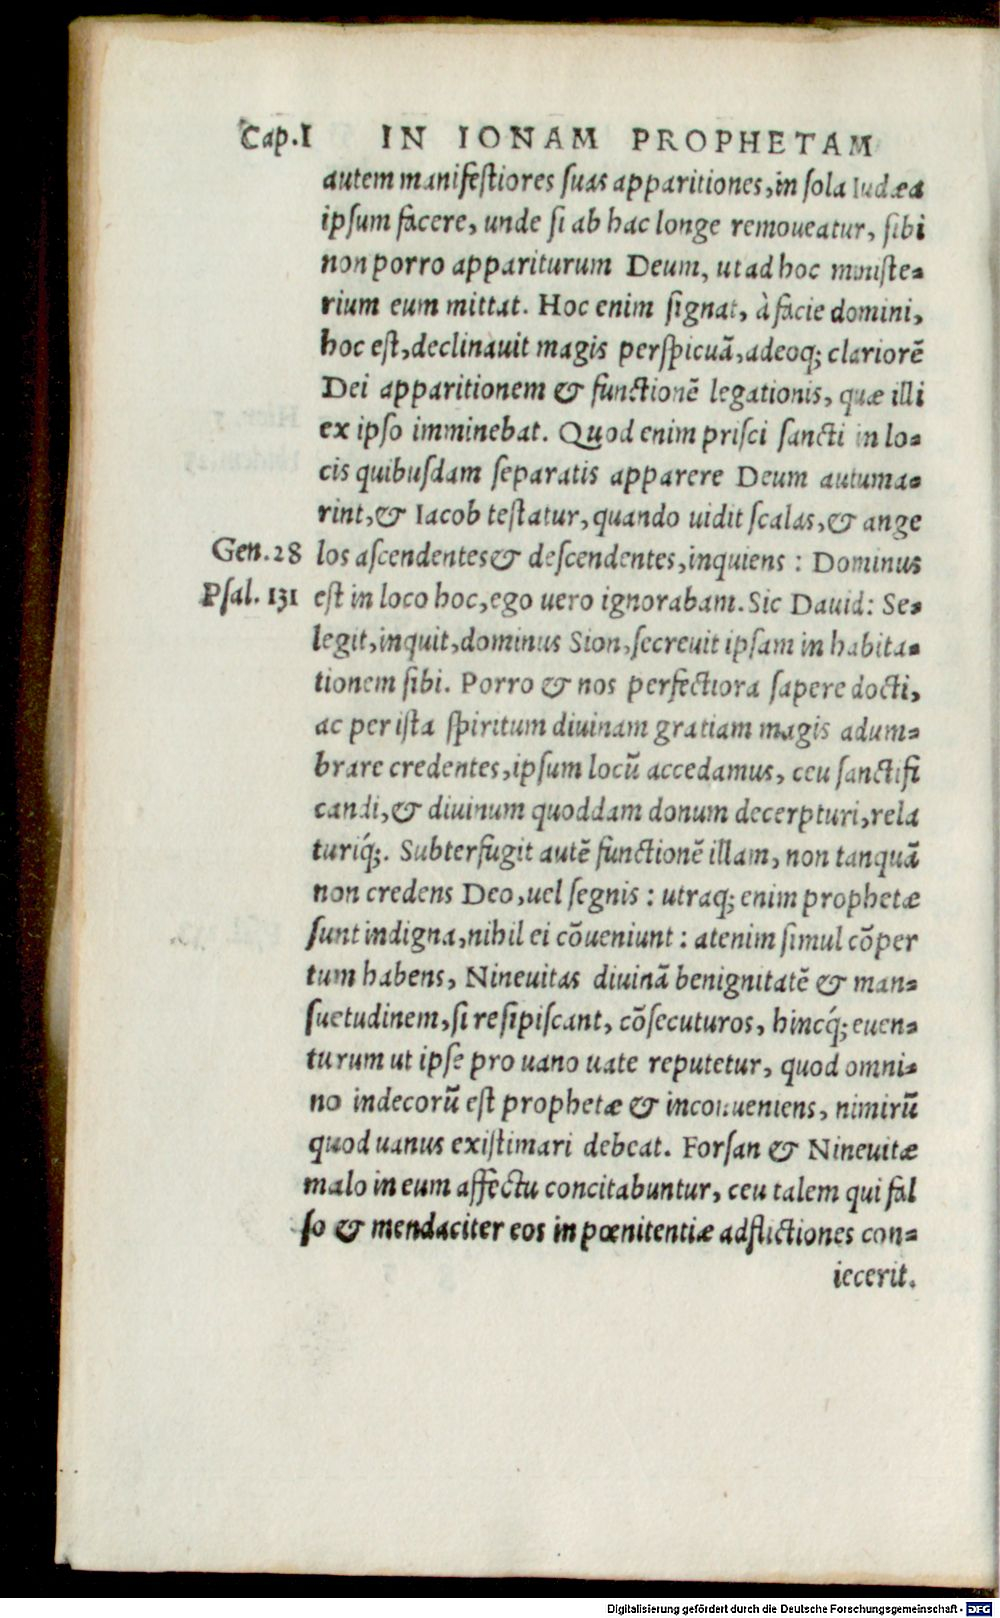 Cap.I IN IONAM PROPHETAM
autem manifestiores suas apparitiones, in sola Iudæa
ipsum facere, unde si ab hac longe remoueatur, sibi
non porro appariturum Deum, ut ad hoc ministe-
rium eum mittat. Hoc enim signat, à facie domini,
hoc est, declinauit magis perspicuā, adeoq; clariorē
Dei apparitionem & functionē legationis, quæ illi
ex ipso imminebat. Quod enim prisci sancti in lo-
cis quibusdam separatis apparere Deum autuma-
rint, & Iacob testatur, quando uidit scalas, & ange
Gen. 28 los ascendentes & descendentes, inquiens : Dominus
Psal. 131 est in loco hoc, ego uero ignorabam. Sic Dauid: Se-
legit, inquit, dominus Sion, secreuit ipsam in habita-
tionem sibi. Porro & nos perfectiora sapere docti,
ac per ista spiritum diuinam gratiam magis adum-
brare credentes, ipsum locū accedamus, ceu sanctifi
candi, & diuinum quoddam donum decerpturi, rela
turiq́;. Subterfugit autē functionē illam, non tanquā
non credens Deo, uel segnis : utraq; enim prophetæ
sunt indigna, nihil ei cōueniunt : atenim simul cōper
tum habens, Nineuitas diuinā benignitatē & man-
suetudinem, si resipiscant, cōsecuturos, hincq́; euen-
turum ut ipse pro uano uate reputetur, quod omni-
no indecorū est prophetæ & inconueniens, nimirū
quod uanus existimari debeat. Forsan & Nineuitæ
malo in eum affectu concitabuntur, ceu talem qui fal
so & mendaciter eos in pœnitentiæ adflictiones con-
iecerit.
Digitalisierung gefördert durch die Deutsche Forschungsgemeinschaft - DFG